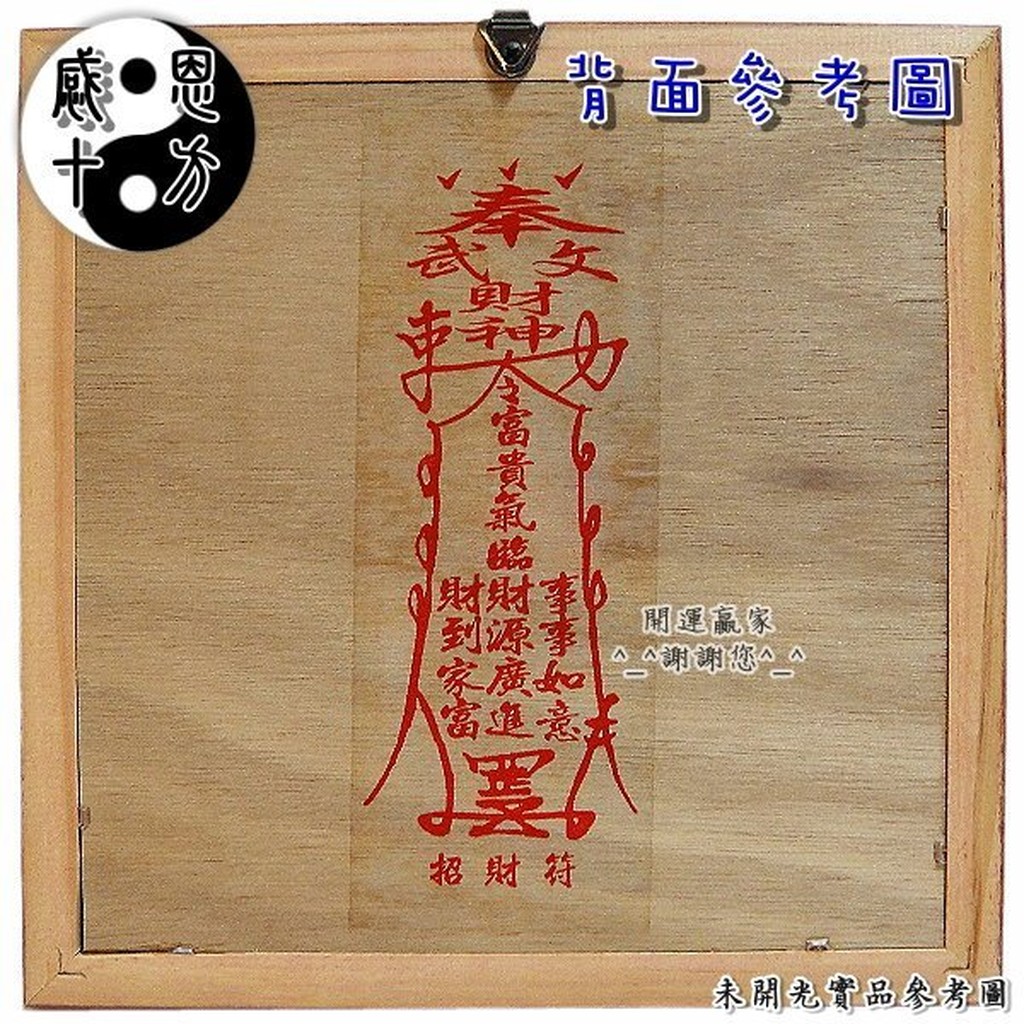 感恩
十方
背面參考圖
奉
武 文
財
神
令
富
貴
氣
臨
財財事
到源事
家廣如
富進意
罡
招財符
開運贏家
^_^謝謝您^_^
未開光實品參考圖